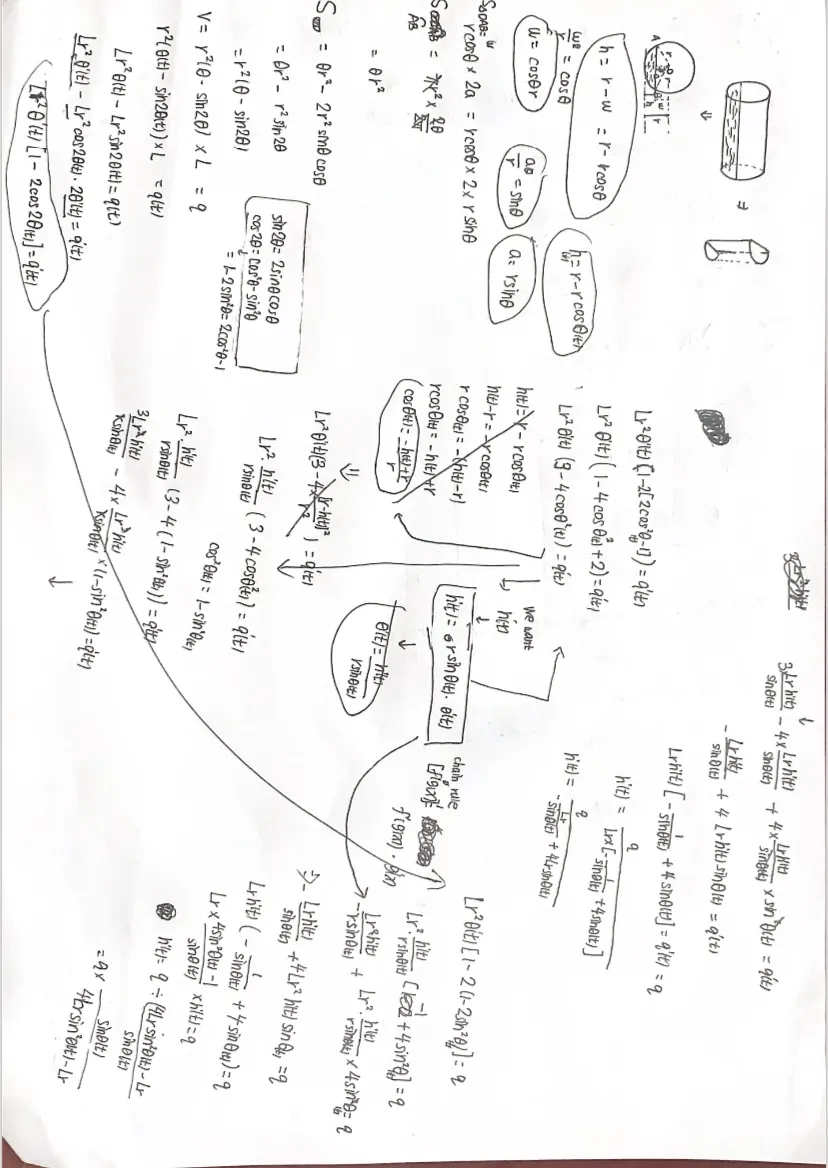 A
r θ r
w
h
r
h = r - w = r - rcosθ
w/r = cosθ
w = cosθr
a/r = sinθ
a = rsinθ
h(t) = r - rcosθ(t)
rcosθ × 2a = rcosθ × 2 × rsinθ
= θr²
S = θr² - 2r² sinθ cosθ
= θr² - r² sin2θ
= r² (θ - sin2θ)
sin2θ = 2sinθcosθ
cos2θ = cos²θ - sin²θ
= 1 - 2sin²θ = 2cos²θ - 1
V = r² (θ - sin2θ) × L = q
r² (θ(t) - sin2θ(t)) × L = q(t)
Lr² θ(t) - Lr² sin2θ(t) = q(t)
Lr² θ'(t) - Lr² cos2θ(t) · 2θ'(t) = q'(t)
Lr² θ'(t) [1 - 2cos2θ(t)] = q'(t)
Lr² θ'(t) [1-2[2cos²θ(t)-1]] = q'(t)
Lr² θ'(t) (1 - 4cos²θ(t) + 2) = q'(t)
Lr² θ'(t) (3 - 4cosθ²(t)) = q'(t)
h(t) = r - rcosθ(t)
h(t) - r = -rcosθ(t)
r cosθ(t) = -(h(t) - r)
rcosθ(t) = -h(t) + r
cosθ(t) = -h(t)+r/r
we want
h'(t)
h'(t) = rsinθ(t) · θ'(t)
θ'(t) = h'(t)/rsinθ(t)
chain rule
[f(g(x))]'
f'(g(x)) · g'(x)
Lr² θ'(t) (3 - 4 × [r-h(t)]²/r²) = q'(t)
Lr² · h'(t)/rsinθ(t) (3 - 4cos²θ(t)) = q'(t)
cos²θ(t) = 1 - sin²θ(t)
Lr² · h'(t)/rsinθ(t) (3 - 4(1 - sin²θ(t))) = q'(t)
3Lr² h'(t)/rsinθ(t) - 4 × Lr² h'(t)/rsinθ(t) × (1 - sin²θ(t)) = q'(t)
3Lrh'(t)/sinθ(t) - 4 × Lrh'(t)/sinθ(t) + 4 × Lrh'(t)/sinθ(t) × sin²θ(t) = q'(t)
- Lrh'(t)/sinθ(t) + 4Lrh'(t)sinθ(t) = q'(t)
Lrh'(t) [- 1/sinθ(t) + 4sinθ(t)] = q'(t) = q
h'(t) = q/Lr×[-1/sinθ(t) + 4sinθ(t)]
h'(t) = q/-Lr/sinθ(t) + 4Lrsinθ(t)
Lr² θ'(t) [1 - 2(1 - 2sin²θ(t))] = q
Lr² · h'(t)/rsinθ(t) [-1 + 4sin²θ(t)] = q
- Lr² h'(t)/rsinθ(t) + Lr² · h'(t)/rsinθ(t) × 4sin²θ(t) = q
- Lrh'(t)/sinθ(t) + 4Lr² h'(t) sinθ(t) = q
Lrh'(t) (- 1/sinθ(t) + 4sinθ(t)) = q
Lr × 4sin²θ(t)-1/sinθ(t) × h'(t) = q
h'(t) = q ÷ (4Lrsin²θ(t) - Lr/sinθ(t)
= q × sinθ(t)/4Lrsin²θ(t) - Lr